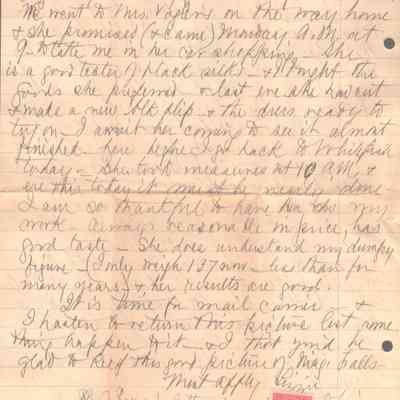 We went to Mrs. on the way home
& she promised & came Monday A.M. at
9 to take me in her car shopping - she
is a good tester of black silks - & bought the
goods she preferred - or last eve she has cut
& made a new blk slip - & the dress ready to
try on - I await her coming to see it almost
finished - here before I go back to Whitefish
today - she took measures at 10 A.M. &
ere this today it must be nearly done
I am so thankful to have her do my
work always reasonable in price, has
good taste - She does understand my dumpy
figure - I only weigh 137 now - less than for
many years - & her results are good.
It is time for mail carrier &
I hasten to return this picture lest some
thing happen to it - & I that you'd be
glad to keep this good picture of Niag. Falls -
Most affly